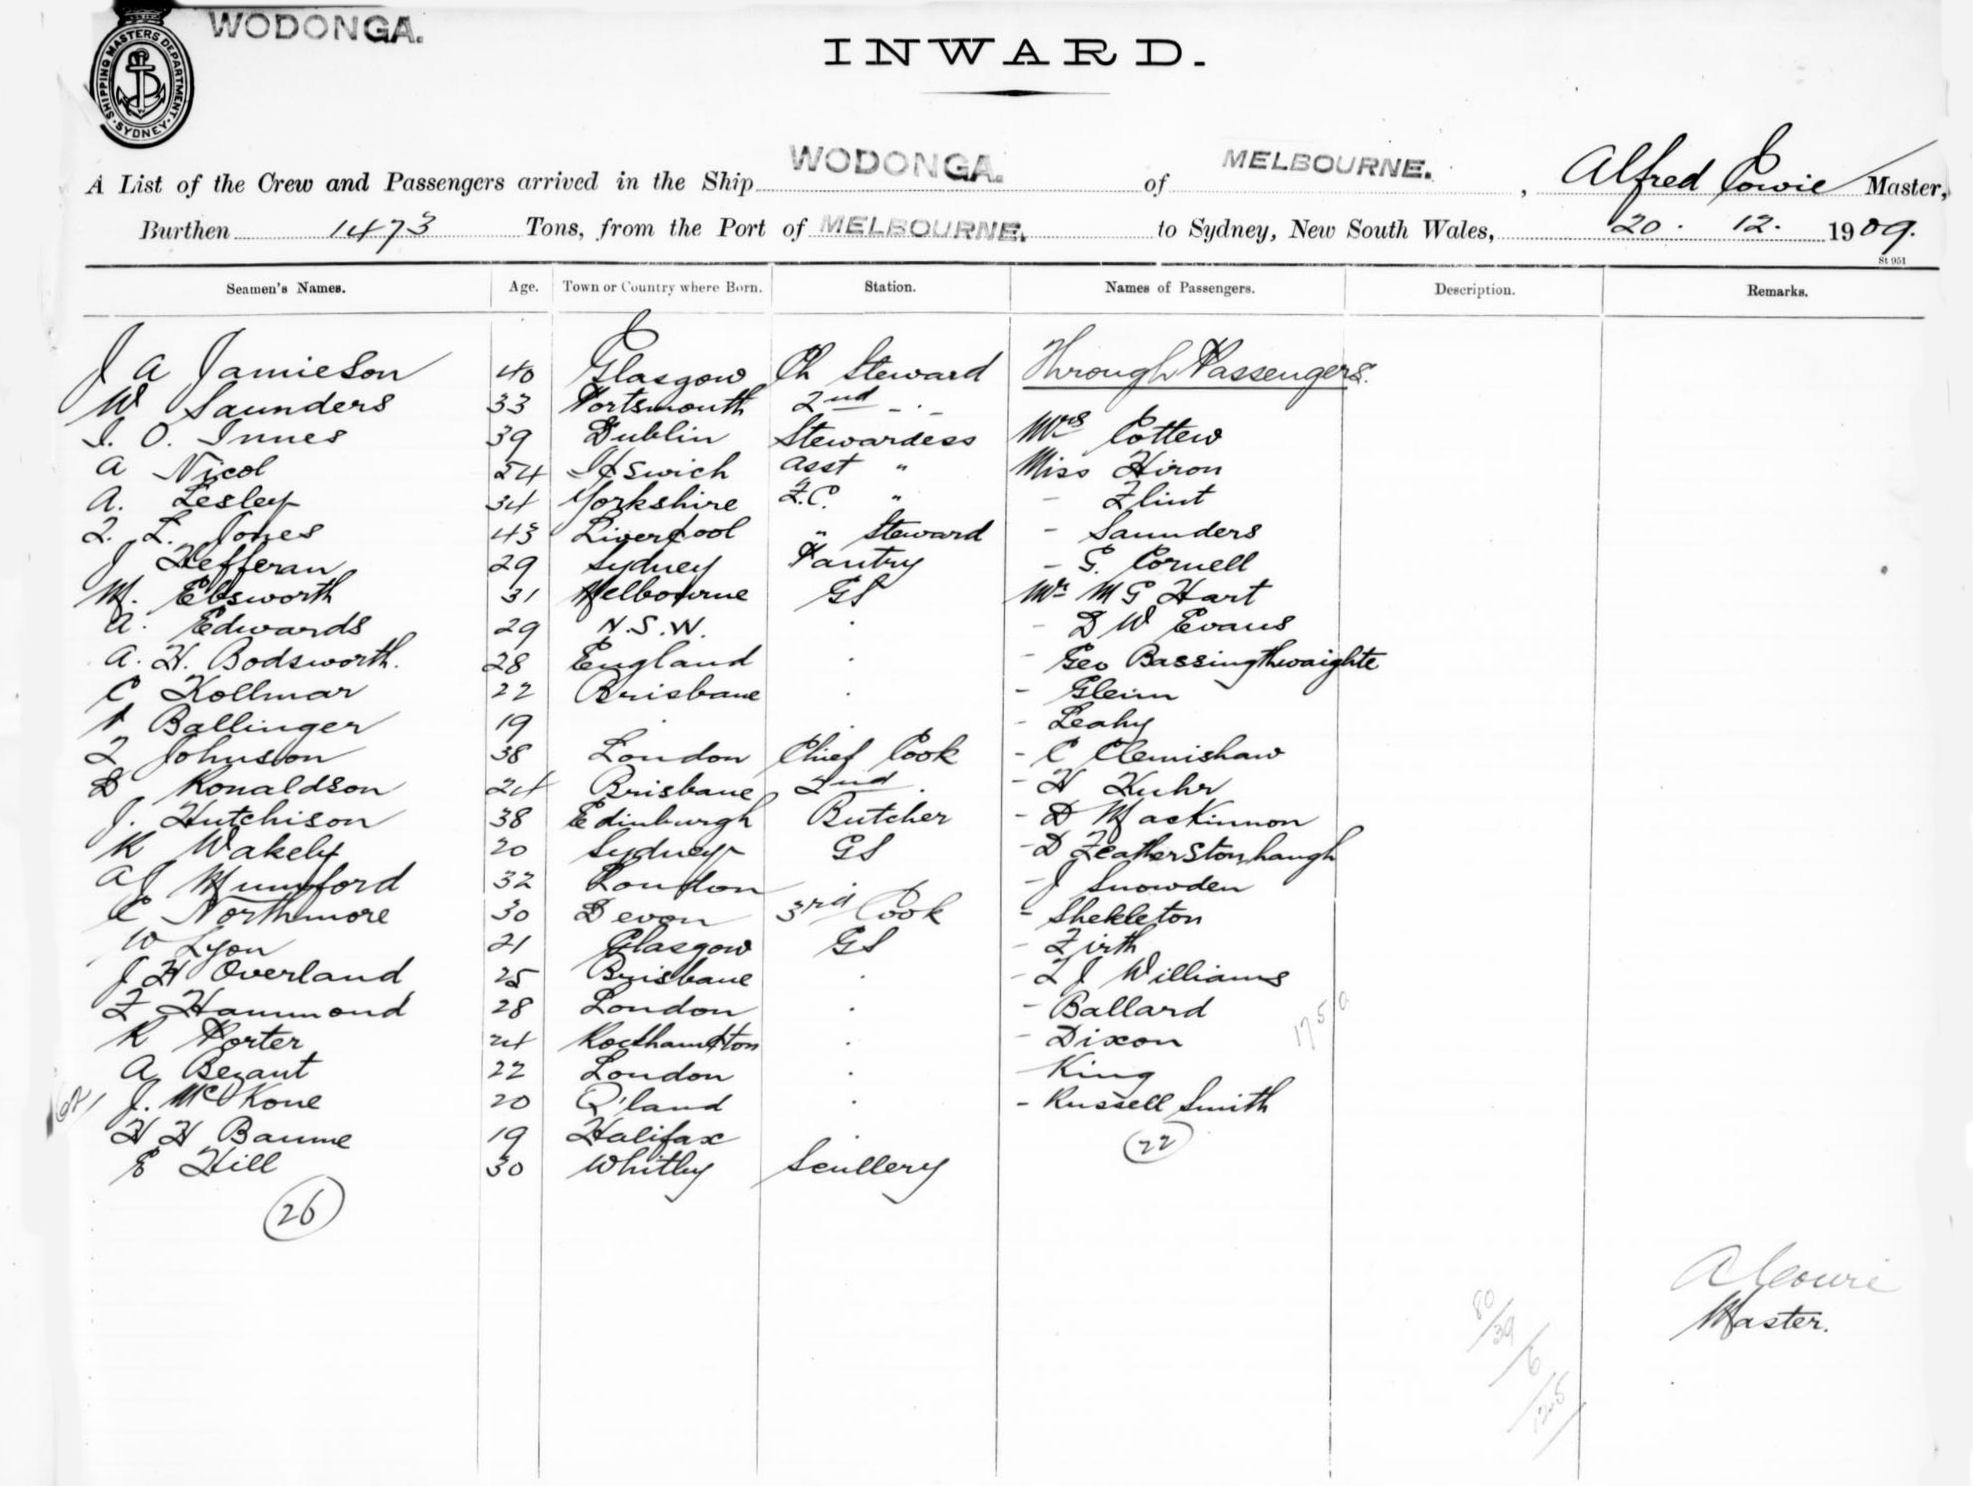 WODONGA.
SHIPPING MASTERS DEPARTMENT SYDNEY
INWARD.
A List of the Crew and Passengers arrived in the Ship WODONGA. of MELBOURNE. , Alfred Cowie Master,
Burthen 1473 Tons, from the Port of MELBOURNE. to Sydney, New South Wales, 20 . 12 . 1909.
St 951
Seamen's Names. Age. Town or Country where Born. Station. Names of Passengers. Description. Remarks.
J A Jamieson 40 Glasgow Ch Steward Through Passengers.
W Saunders 33 Portsmouth 2nd - . -
I. O. Innes 39 Dublin Stewardess Mrs Cottew
A Nicol 54 Ipswich Asst " Miss Hiron
A. Lesley 34 Yorkshire F.C. " - Flint
F. L. Jones 43 Liverpool " Steward - Saunders
J Hefferan 29 Sydney Pantry - G. Cornell
M. Ebsworth 31 Melbourne GS Mr M G Hart
A. Edwards 29 N.S.W. . - D W Evans
A. H. Bodsworth. 28 England . - Geo Bassingthwaighte
C Kollmar 22 Brisbane . - Glenn
Ballinger 19 . . - Leahy
F Johnston 38 London Chief Cook - C Clemishaw
D Ronaldson 24 Brisbane 2nd . - H Kuhr
J. Hutchison 38 Edinburgh Butcher - D Mackinnon
R Wakely 20 Sydney GS - D Featherstonhaugh
A J Mumford 32 London . - J Snowden
E Northmore 30 Devon 3rd Cook - Shekleton
W Lyon 21 Glasgow GS - Firth
J H Overland 25 Brisbane . - F J Williams
F Hammond 28 London . - Ballard
R Porter 24 Rockhampton . - Dixon
A Bezant 22 London . - King
J. McKone 20 Q'land . - Russell Smith
H H Baume 19 Halifax . 22
E Hill 30 Whitby Scullery
26
1750
A Cowie
Master.
80/39/6/125